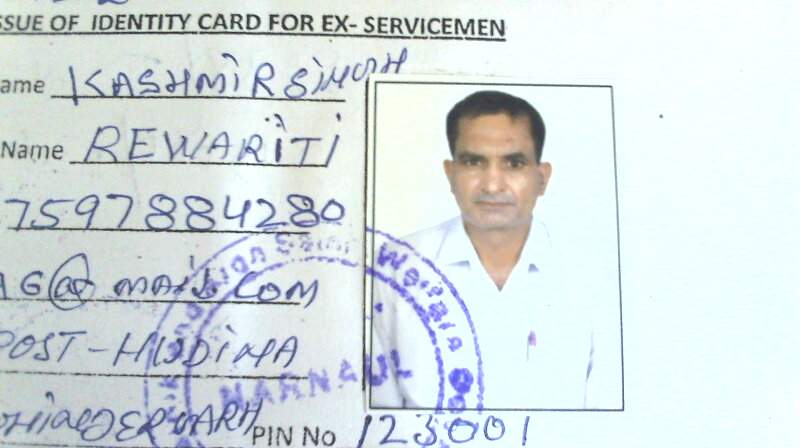 SSUE OF IDENTITY CARD FOR EX- SERVICEMEN
ame KASHMIR SINGH
Name REWARITI
75978 84280
AG@MAIL.COM
POST - HUDINA
PIN No 123001
Sainik Welfare
NARNAUL